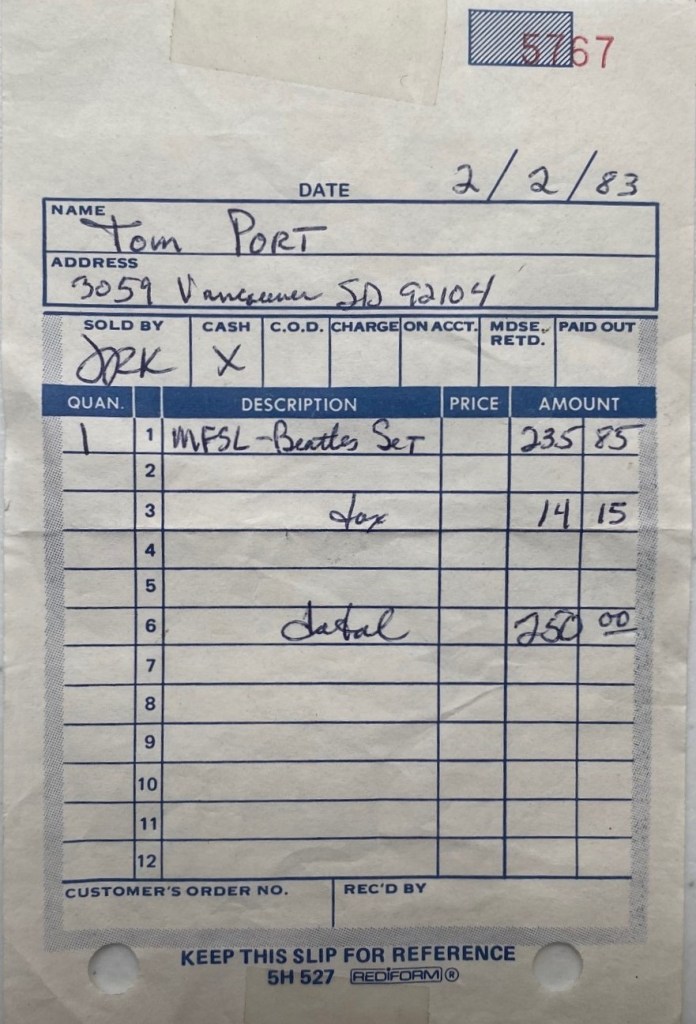 5767
DATE 2/2/83
NAME Tom PORT
ADDRESS
3059 Vancouver SD 92104
SOLD BY CASH C.O.D. CHARGE ON ACCT. MDSE. RETD. PAID OUT
JRK X
QUAN. DESCRIPTION PRICE AMOUNT
1 1 MFSL - Beatles Set 235 85
2
3 tax 14 15
4
5
6 total 250 00
7
8
9
10
11
12
CUSTOMER'S ORDER NO. REC'D BY
KEEP THIS SLIP FOR REFERENCE
5H 527 REDIFORM ®